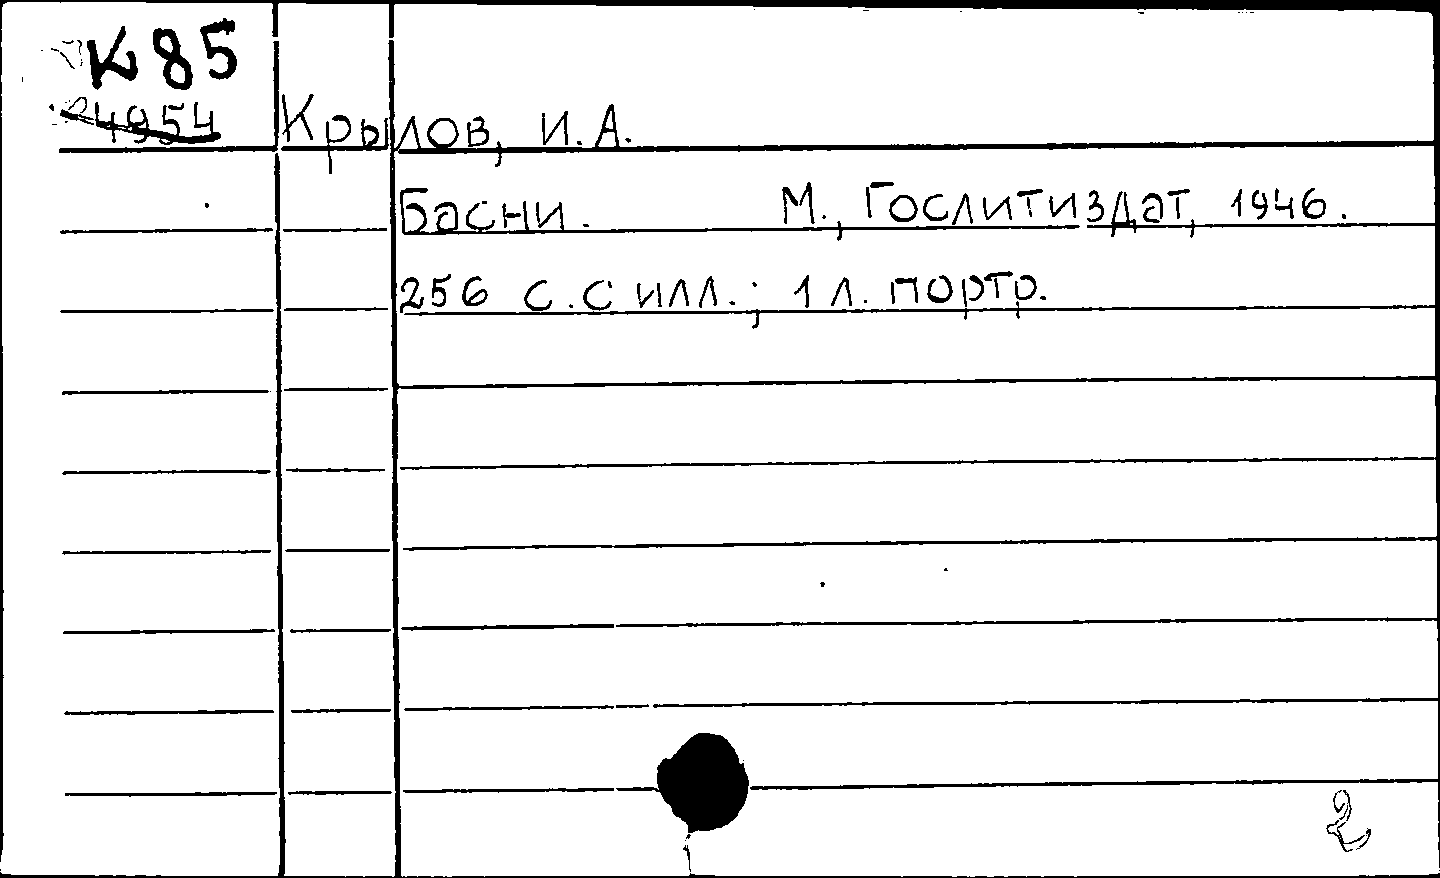 К 85
4954
Крылов, И. А.
Басни. М., Гослитиздат, 1946.
256 с. с илл.; 1 л. портр.
2